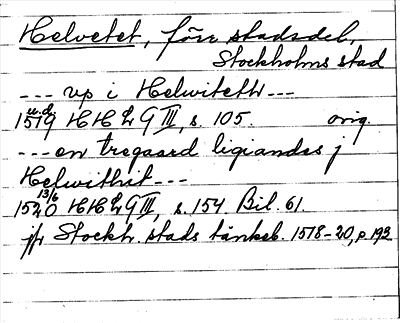 Helvetet, förr stadsdel,
Stockholms stad
--- up i Helwiteth ---
u.d.
1519 HH L G III, s. 105. orig.
--- en tregaard ligiandes j
Helwithit ---
13/6
1520 HH L G III, s. 154 Bil. 61.
jfr Stockh. stads tänkeb. 1518-20, p 193